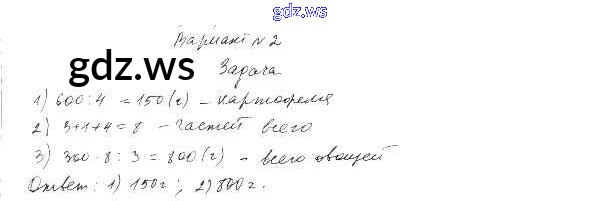 gdz.ws
Вариант №2
gdz.ws
Задача
1) 600:4 = 150 (г) – картофеля
2) 3+1+4=8 – частей всего
3) 300·8:3=800(г) – всего овощей
Ответ: 1) 150г; 2) 800г.